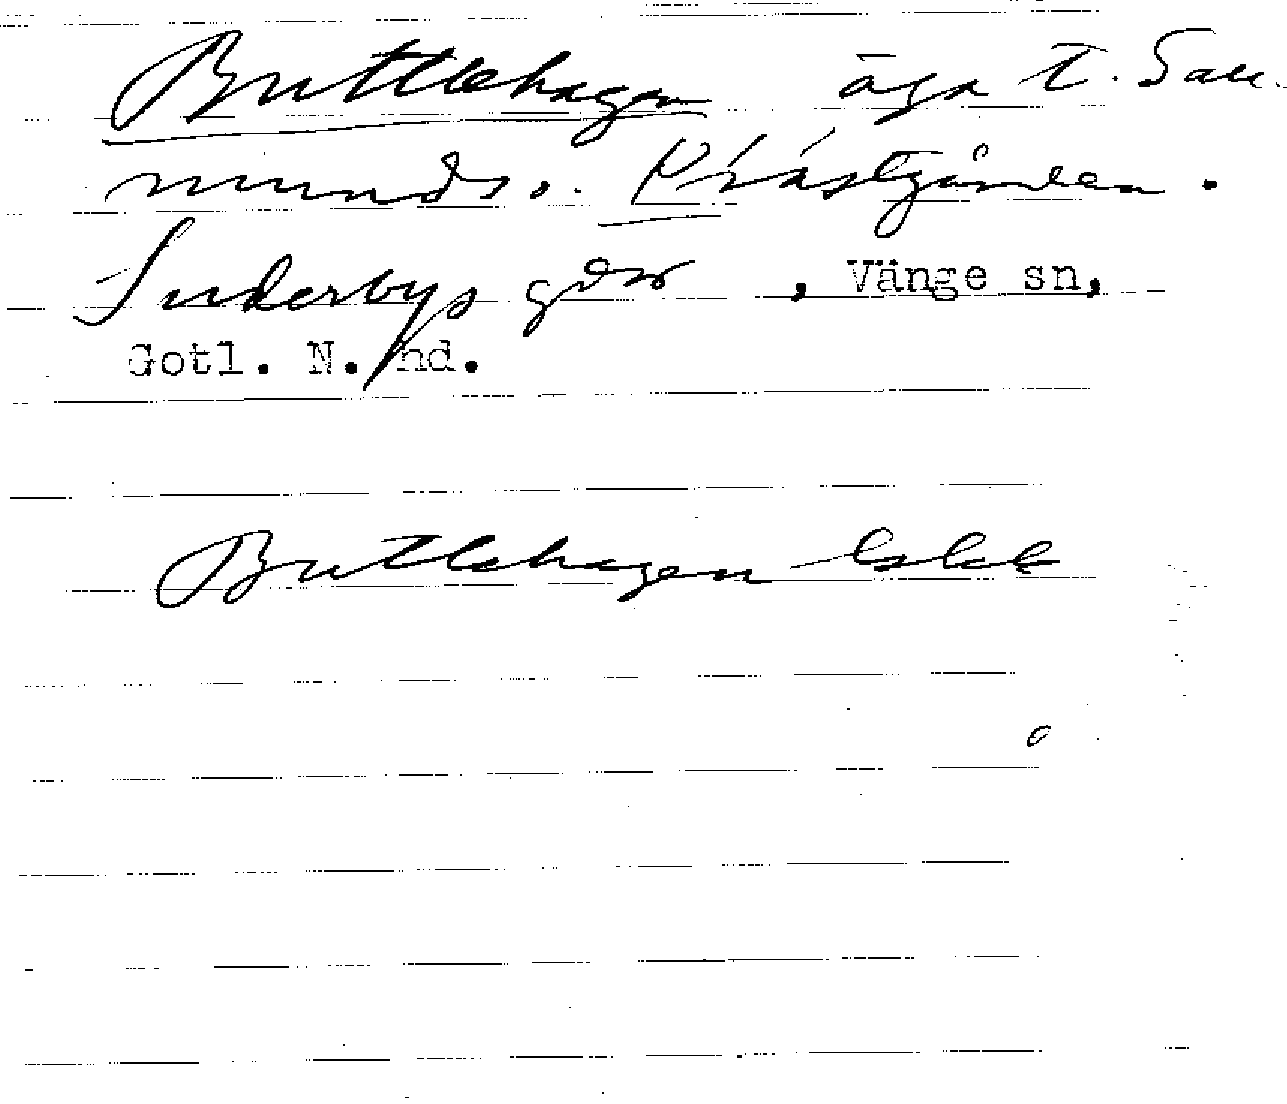 Buttlehagen äga t. Sau-
munds o. Prästgården.
Suderbys gdr , Vänge sn,
Gotl. N. hd.
Buttlehagen